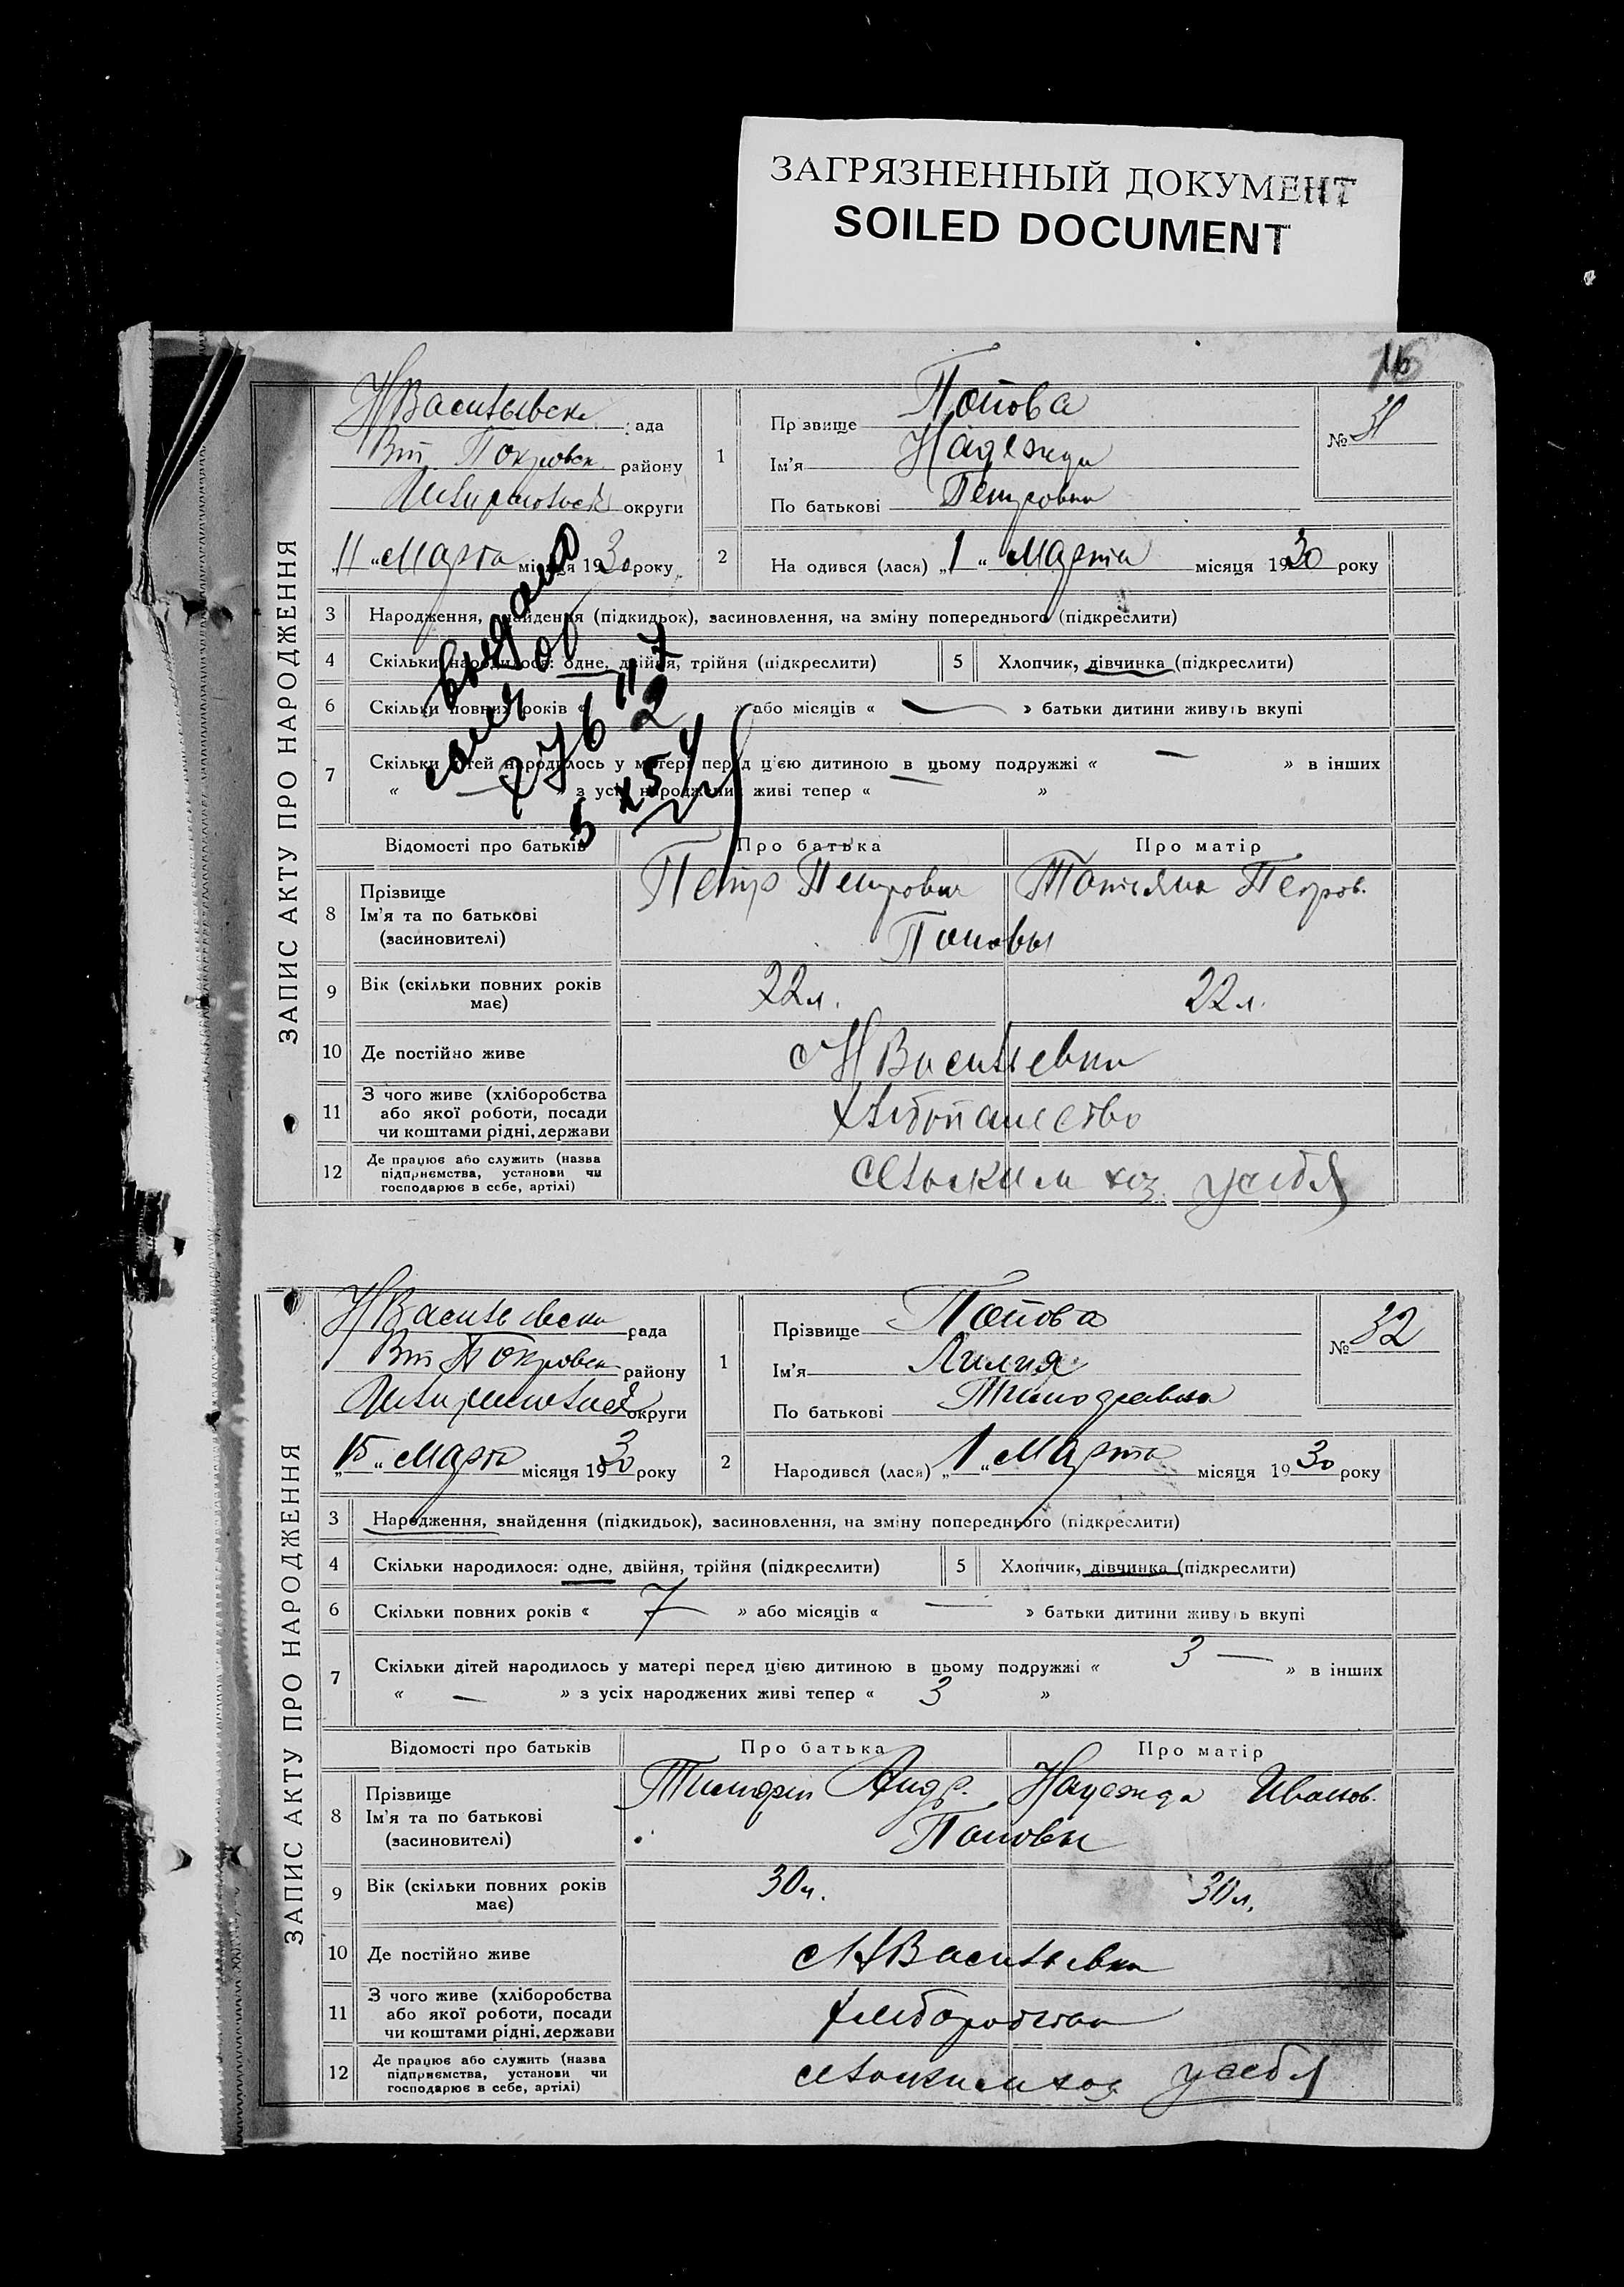 ЗАГРЯЗНЕННЫЙ ДОКУМЕНТ
SOILED DOCUMENT
16
ЗАПИС АКТУ ПРО НАРОДЖЕННЯ
НВасильевск рада
Вт Покровск району
округи
„11“ Марта місяця 1930 року
1
Прізвище Попова
Ім'я Надежда
По батькові Петровна
№ 31
2 Народився (лася) „1“ Марта місяця 1930 року
3 Народження, знайдення (підкидьок), засиновлення, на зміну попереднього (підкреслити)
4 Скільки народилося: одне, двійня, трійня (підкреслити)
5 Хлопчик, дівчинка (підкреслити)
6 Скільки повних років « » або місяців « — » батьки дитини живуть вкупі
7 Скільки дітей народилось у матері перед цією дитиною в цьому подружжі « — » в інших
« — » з усіх народжених живі тепер « — »
Відомості про батьків Про батька Про матір
8 Прізвище
Ім'я та по батькові
(засиновителі)
Петр Петрович Татьяна Петров.
Поповы
9 Вік (скільки повних років має) 22 л. 22 л.
10 Де постійно живе с НВасильевка
11 З чого живе (хліборобства
або якої роботи, посади
чи коштами рідні, держави
хлебопашество
12 Де працює або служить (назва
підприємства, установи чи
господарює в себе, артілі)
сельским хоз. у себя
ЗАПИС АКТУ ПРО НАРОДЖЕННЯ
НВасильевска рада
Вт Покровск району
округи
„15“ Марта місяця 1930 року
1
Прізвище Попова
Ім'я Лилия
По батькові
№ 32
2 Народився (лася) „1“ Марта місяця 1930 року
3 Народження, знайдення (підкидьок), засиновлення, на зміну попереднього (підкреслити)
4 Скільки народилося: одне, двійня, трійня (підкреслити)
5 Хлопчик, дівчинка (підкреслити)
6 Скільки повних років « 7 » або місяців « — » батьки дитини живуть вкупі
7 Скільки дітей народилось у матері перед цією дитиною в цьому подружжі « 3 — » в інших
« — » з усіх народжених живі тепер « 3 »
Відомості про батьків Про батька Про матір
8 Прізвище
Ім'я та по батькові
(засиновителі)
Андр. Надежда Иванов.
Поповы
9 Вік (скільки повних років має) 30 л. 30 л.
10 Де постійно живе с НВасильевка
11 З чого живе (хліборобства
або якої роботи, посади
чи коштами рідні, держави
12 Де працює або служить (назва
підприємства, установи чи
господарює в себе, артілі)
сельским хоз у себя